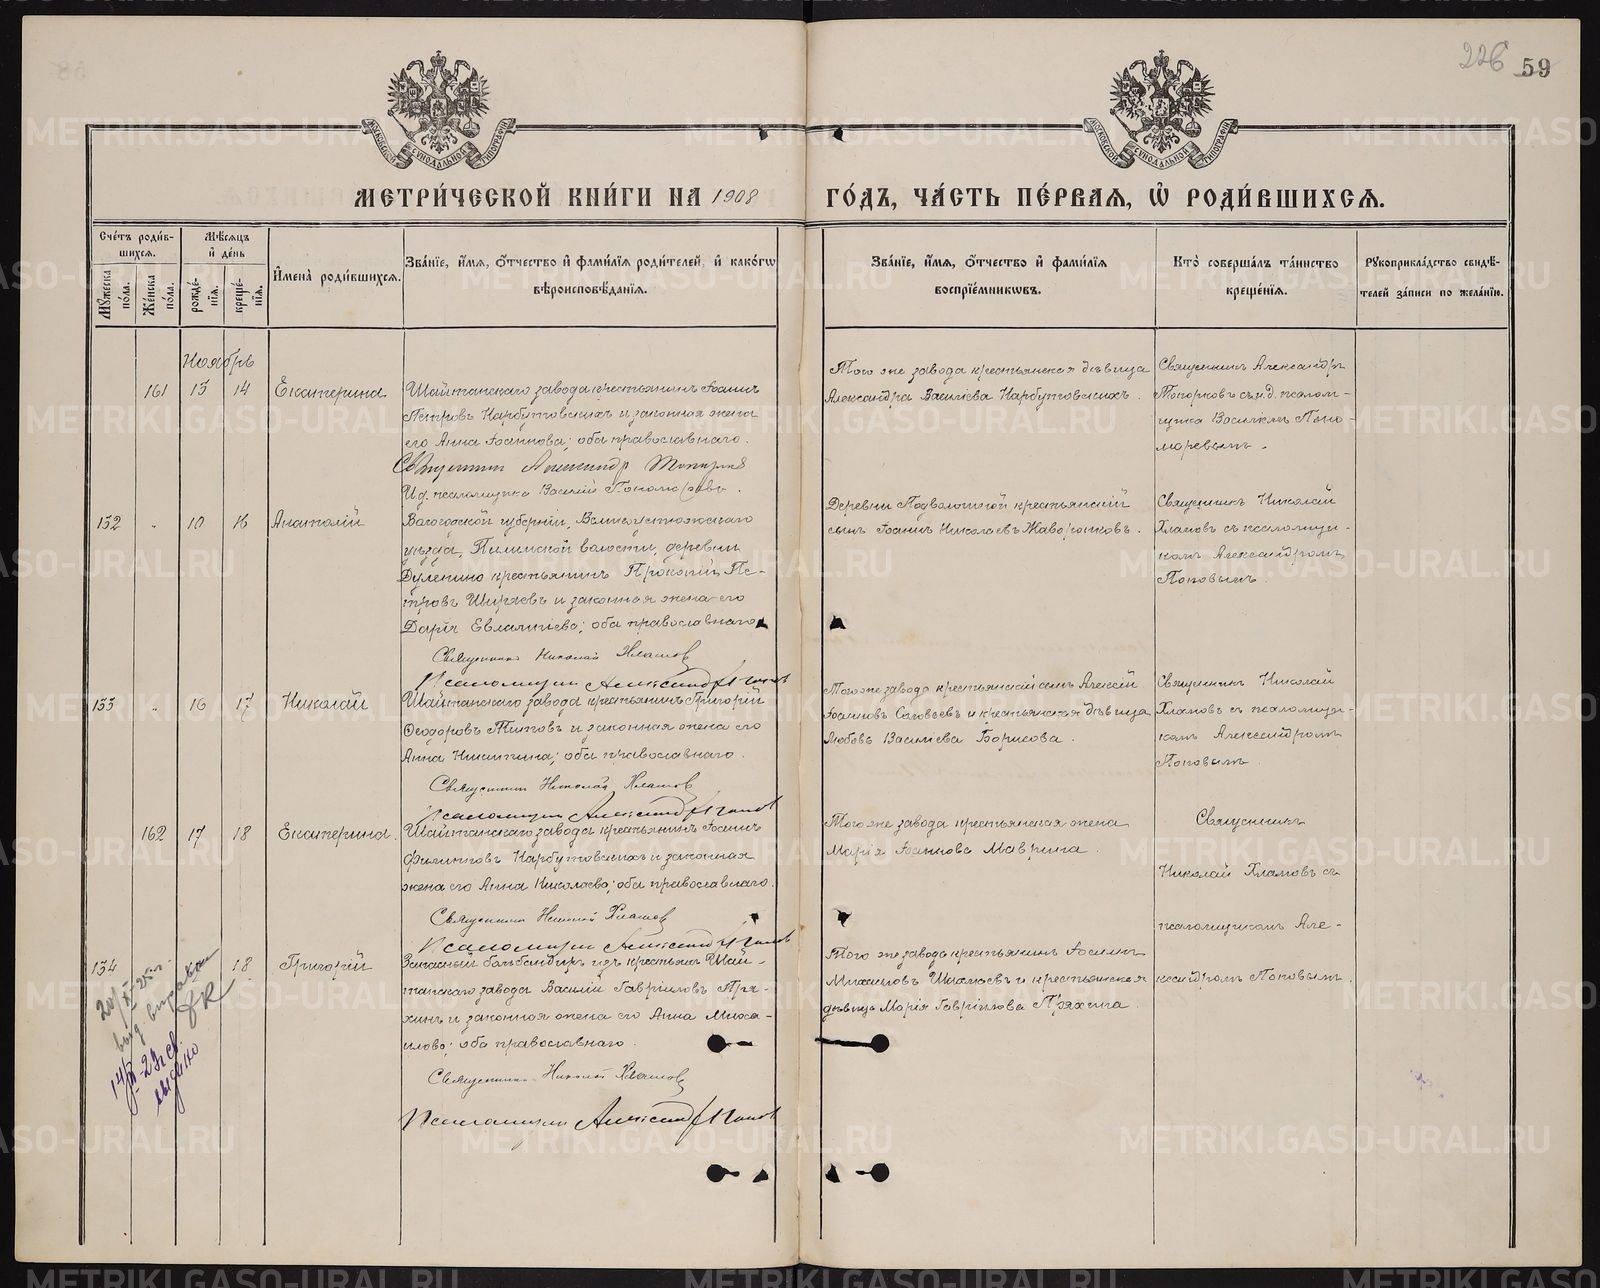 226 59
МОСКОВСКОЙ СѴНОДАЛЬНОЙ ТИПОГРАФІИ
МОСКОВСКОЙ СѴНОДАЛЬНОЙ ТИПОГРАФІИ
МЕТРИ́ЧЕСКОЙ КНИ́ГИ НА 1908 ГО́ДЪ, ЧА́СТЬ ПЕ́РВАЯ, Ѽ РОДИ́ВШИХСЯ.
Сче́тъ роди́в-
шихся.
Мꙋжеска по́ла.
Же́нска по́ла.
Мѣ́сяцъ
и́ де́нь
рожде́-
нїя.
креще́-
нїя.
И҆мена̀ роди́вшихся.
Зва́нїе, и́мя, ѻ҆́тчество и҆ фами́лїя роди́телей, и҆ како́гѡ
вѣроисповѣ́данїя.
Зва́нїе, и́мя, ѻ҆́тчество и҆ фами́лїя
воспрїе́мникѡвъ.
Кто̀ соверша́лъ та́инство
креще́нїя.
Рꙋкоприкла́дство свидѣ́-
телей за́писи по жела́нїю.
Ноябрь
161 13 14 Екатерина
Шайтанскаго завода крестьянинъ Іоаннъ
Петровъ Нарбутовскихъ и законная жена
его Анна Іоаннова; оба православнаго.
Священникъ Александр Топорков
И.д. псаломщика Василій Пономаревъ.
Того же завода крестьянская дѣвица
Александра Васильева Нарбутовскихъ.
Священникъ Александръ
Топорковъ съ и.д. псалом-
щика Василіемъ Поно-
маревымъ.
132 " 10 16 Анатолій
Вологодской губерніи, Велико-устюжскаго
уѣзда, волости, деревни
Буленино крестьянинъ Прокопій Пе-
тровъ Ширяевъ и законная жена его
Дарія Евлампіева; оба православнаго.
Священникъ Николай Хламов
Псаломщик Александр Попов
Деревни Подволошной крестьянскій
сынъ Іоаннъ Николаевъ Жаворонковъ.
Священникъ Николай
Хламовъ съ псаломщи-
комъ Александромъ
Поповымъ.
133 " 16 17 Николай
Шайтанскаго завода крестьянинъ Григорій
Ѳеодоровъ Титовъ и законная жена его
Анна Никитина; оба православнаго.
Священникъ Николай Хламов
Псаломщик Александр Попов
Того же завода крестьянскій сынъ Алексій
Іоанновъ Соловьевъ и крестьянская дѣвица
Любовь Васильева Борисова.
Священникъ Николай
Хламовъ съ псаломщи-
комъ Александромъ
Поповымъ.
162 17 18 Екатерина.
Шайтанскаго завода крестьянинъ Іоаннъ
Филипповъ Нарбутовскихъ и законная
жена его Анна Николаева; оба православнаго.
Священникъ Николай Хламов
Псаломщик Александр Попов
Того же завода крестьянская жена
Марія Іоаннова Маврина.
Священникъ
Николай Хламовъ съ
псаломщикомъ Але-
ксандромъ Поповымъ.
134 18 Григорій
Запасный бомбандиръ изъ крестьянъ Шай-
танскаго завода Василій Гавріиловъ Пря-
хинъ и законная жена его Анна Миха-
илова; оба православнаго.
Священникъ Николай Хламов
Псаломщик Александр Попов
Того же завода крестьянинъ Іосифъ
Михаиловъ и крестьянская
дѣвица Марія Гавріилова Пряхина.